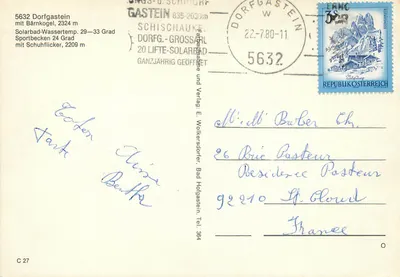 5632 Dorfgastein
mit Bärnkogel, 2324 m
Solarbad-Wassertemp. 29—33 Grad
Sportbecken 24 Grad
mit Schuhflicker, 2209 m
GASTEIN
SCHISCHAUKEL
DORFG.-GROSSARL
20 LIFTE-SOLARBAD
GANZJÄHRIG GEÖFFNET
DORFGASTEIN
W
22.-7.80-11
5632
REPUBLIK ÖSTERREICH
und Verlag: E. Wolkersdorfer, Bad Hofgastein. Tel. 364
Tante
Bertha
26 Rue Pasteur
Residence Pasteur
92210 St. Cloud
France
C 27